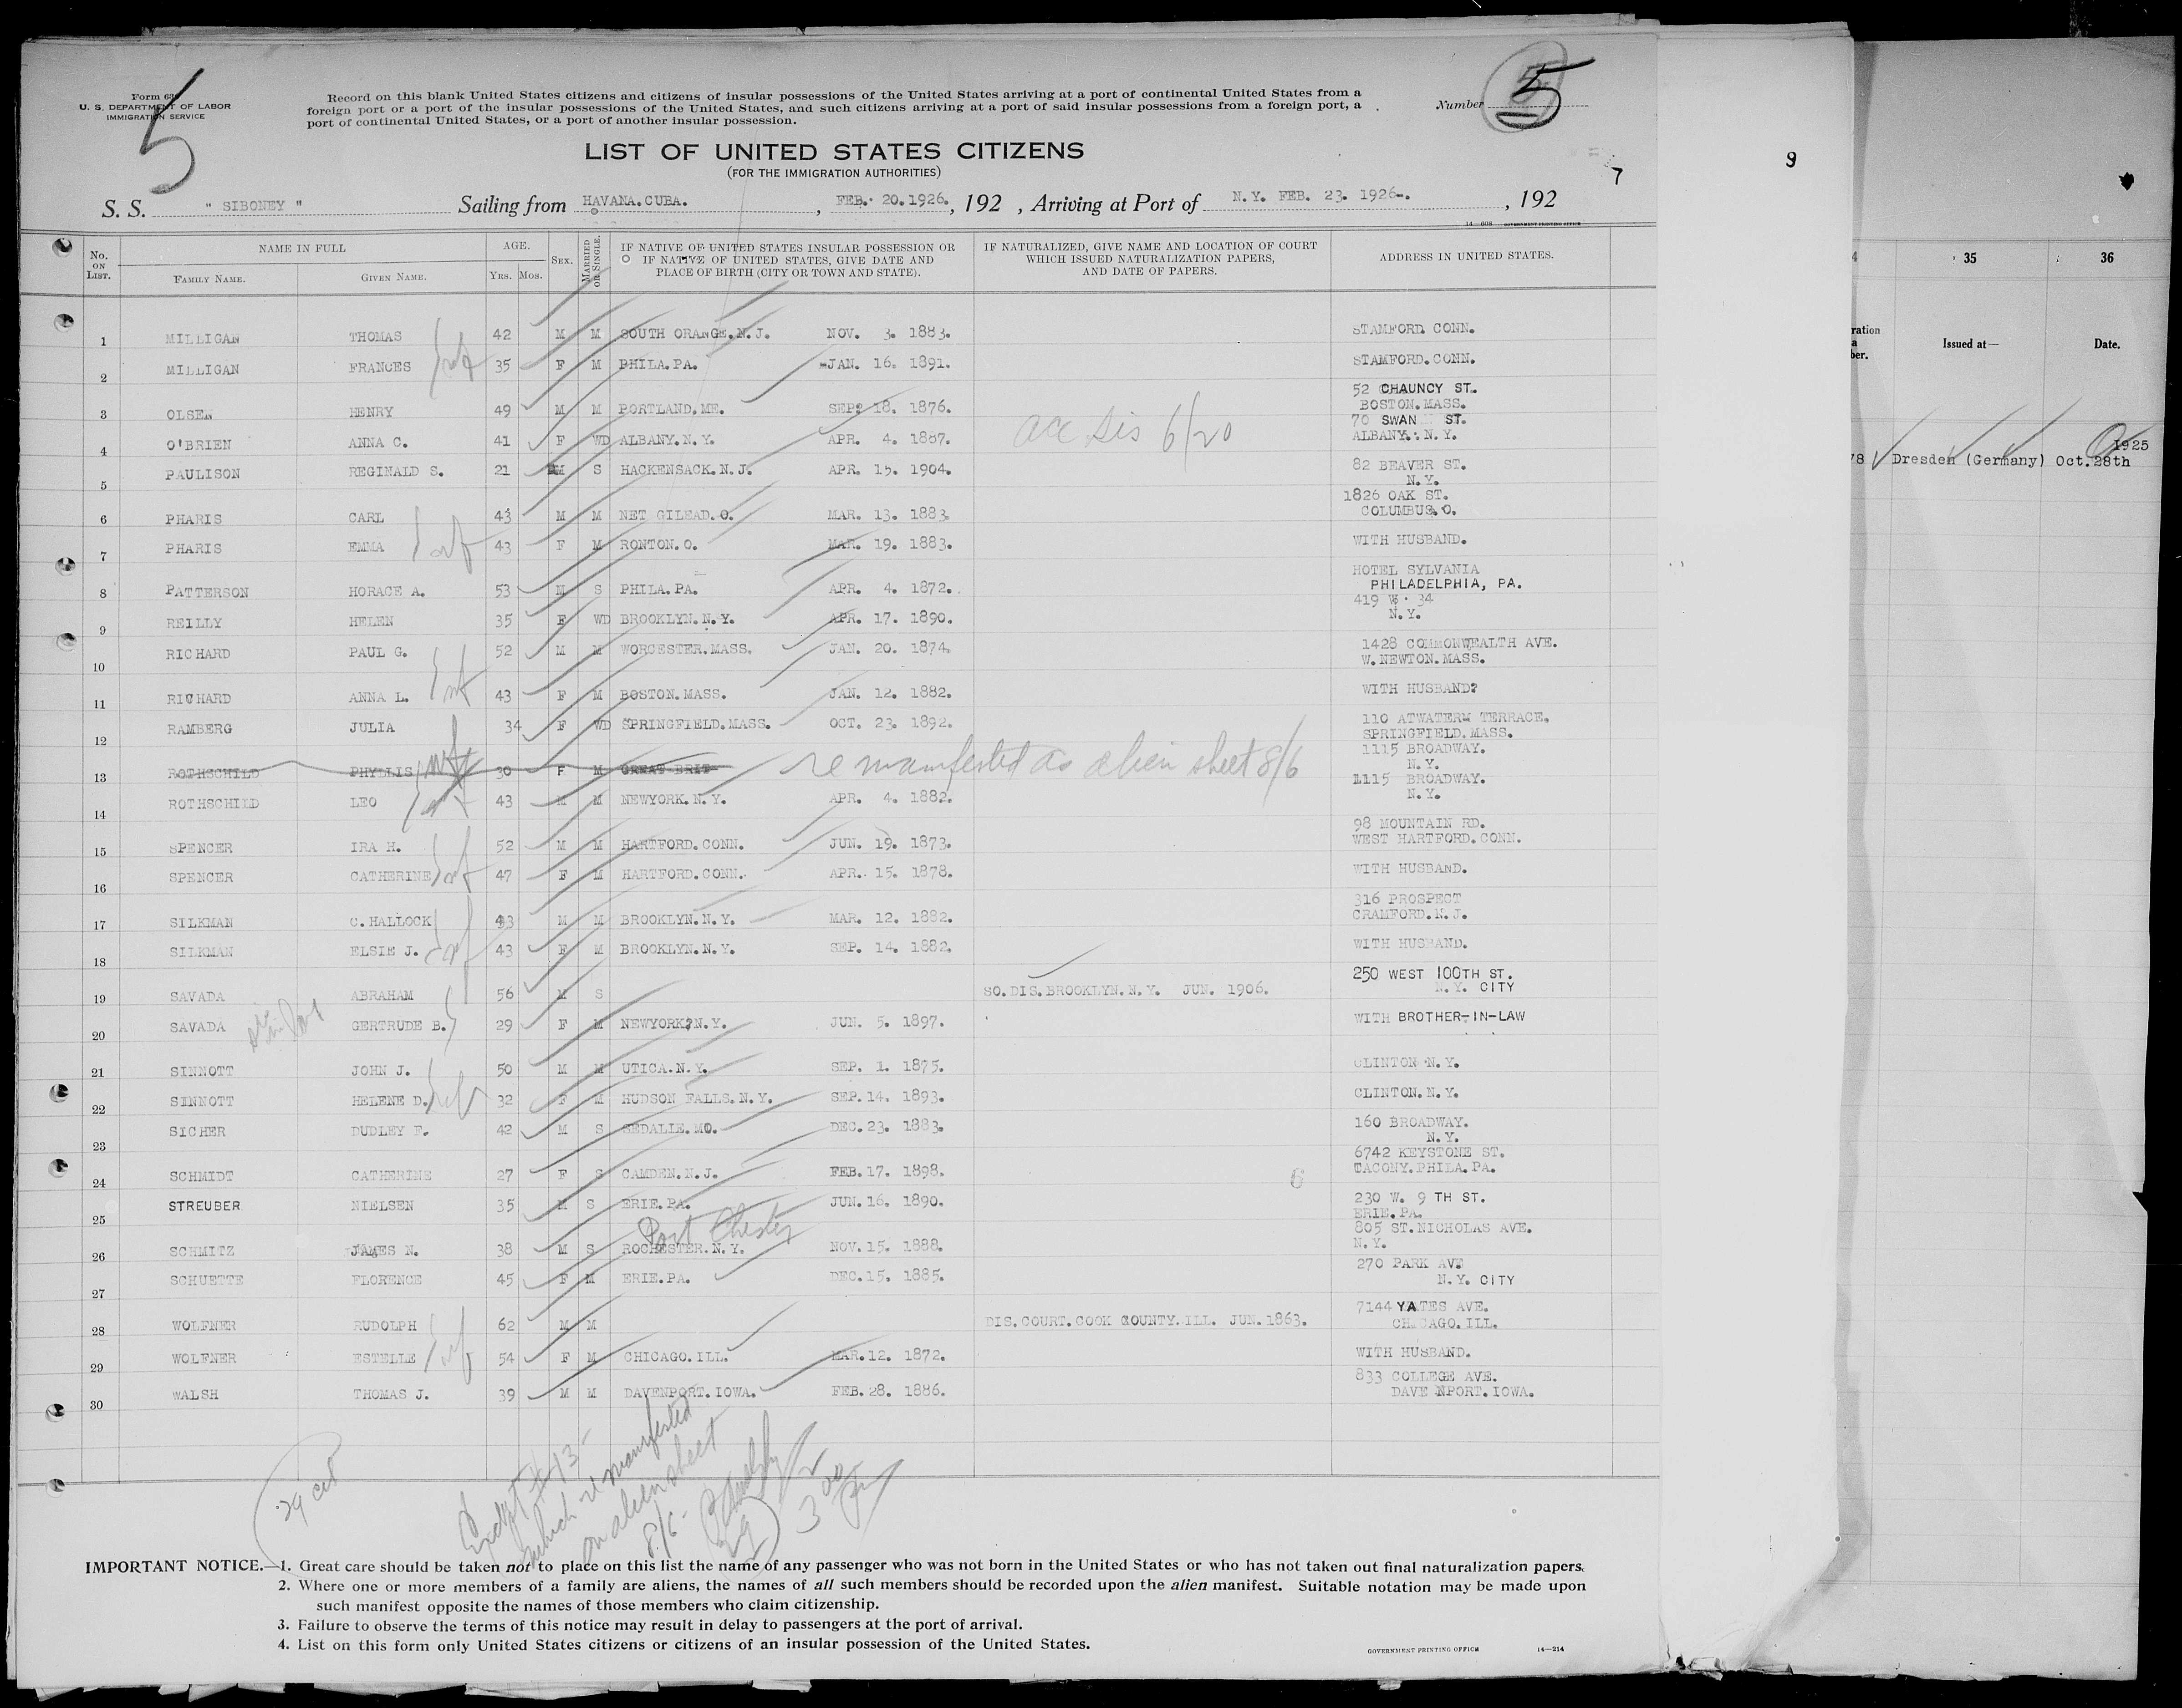 5
Form 630
U. S. DEPARTMENT OF LABOR
IMMIGRATION SERVICE
Record on this blank United States citizens and citizens of insular possessions of the United States arriving at a port of continental United States from a
foreign port or a port of the insular possessions of the United States, and such citizens arriving at a port of said insular possessions from a foreign port, a
port of continental United States, or a port of another insular possession.
Number 5
LIST OF UNITED STATES CITIZENS
(FOR THE IMMIGRATION AUTHORITIES)
7
S. S. " SIBONEY " Sailing from HAVANA.CUBA. , FEB. 20.1926. , 192 , Arriving at Port of N.Y. FEB. 23. 1926-. , 192
14—608 GOVERNMENT PRINTING OFFICE
No. ON LIST. NAME IN FULL FAMILY NAME. GIVEN NAME. AGE. YRS. MOS. SEX. MARRIED OR SINGLE. IF NATIVE OF UNITED STATES INSULAR POSSESSION OR IF NATIVE OF UNITED STATES, GIVE DATE AND PLACE OF BIRTH (CITY OR TOWN AND STATE). IF NATURALIZED, GIVE NAME AND LOCATION OF COURT WHICH ISSUED NATURALIZATION PAPERS, AND DATE OF PAPERS. ADDRESS IN UNITED STATES.
1 MILLIGAN THOMAS 42 M M SOUTH ORANGE.N.J. NOV. 3. 1883. STAMFORD. CONN.
2 MILLIGAN FRANCES 35 F M PHILA.PA. -JAN. 16. 1891. STAMFORD.CONN.
3 OLSEN HENRY 49 M M PORTLAND.ME. SEP? 18. 1876. 52 CHAUNCY ST. BOSTON.MASS.
4 O'BRIEN ANNA C. 41 F WD ALBANY.N.Y. APR. 4. 1887. acc dis 6/20 70 SWAN ST. ALBANY.N.Y.
5 PAULISON REGINALD S. 21 M S HACKENSACK.N.J. APR. 15. 1904. 82 BEAVER ST. N.Y.
6 PHARIS CARL 43 M M NET GILEAD.O. MAR. 13. 1883. 1826 OAK ST. COLUMBUS.O.
7 PHARIS EMMA 43 F M RONTON.O. MAR. 19. 1883. WITH HUSBAND.
8 PATTERSON HORACE A. 53 M S PHILA.PA. APR. 4. 1872. HOTEL SYLVANIA PHILADELPHIA, PA.
9 REILLY HELEN 35 F WD BROOKLYN.N.Y. APR. 17. 1890. 419 W. 34 N.Y.
10 RICHARD PAUL G. 52 M M WORCESTER.MASS. JAN. 20. 1874. 1428 COMMONWEALTH AVE. W.NEWTON.MASS.
11 RICHARD ANNA L. 43 F M BOSTON.MASS. JAN. 12. 1882. WITH HUSBAND?
12 RAMBERG JULIA 34 F WD SPRINGFIELD.MASS. OCT. 23. 1892. 110 ATWATER TERRACE. SPRINGFIELD.MASS.
13 ROTHSCHILD PHYLLIS 30 F M GREAT BRIT re manifested as alien sheet 8/6 1115 BROADWAY. N.Y.
14 ROTHSCHILD LEO 43 M M NEWYORK.N.Y. APR. 4. 1882. 1115 BROADWAY. N.Y.
15 SPENCER IRA H. 52 M M HARTFORD.CONN. JUN. 19. 1873. 98 MOUNTAIN RD. WEST HARTFORD.CONN.
16 SPENCER CATHERINE 47 F M HARTFORD.CONN. APR. 15. 1878. WITH HUSBAND.
17 SILKMAN C.HALLOCK 43 M M BROOKLYN.N.Y. MAR. 12. 1882. 316 PROSPECT CRAMFORD.N.J.
18 SILKMAN ELSIE J. 43 F M BROOKLYN.N.Y. SEP. 14. 1882. WITH HUSBAND.
19 SAVADA ABRAHAM 56 M S SO.DIS.BROOKLYN.N.Y. JUN. 1906. 250 WEST 100TH ST. N.Y. CITY
20 SAVADA GERTRUDE B. 29 F M NEWYORK?N.Y. JUN. 5. 1897. WITH BROTHER-IN-LAW
21 SINNOTT JOHN J. 50 M M UTICA.N.Y. SEP. 1. 1875. CLINTON N.Y.
22 SINNOTT HELENE D. 32 F M HUDSON FALLS.N.Y. SEP.14. 1893. CLINTON.N.Y.
23 SICHER DUDLEY F. 42 M S SEDALIE.MO. DEC.23. 1883. 160 BROADWAY. N.Y.
24 SCHMIDT CATHERINE 27 F S CAMDEN.N.J. FEB.17. 1898. 6 6742 KEYSTONE ST. TACONY.PHILA.PA.
25 STREUBER NIELSEN 35 M S ERIE.PA. JUN.16. 1890. 230 W. 9 TH ST. ERIE.PA.
Port Chester
26 SCHMITZ JAMES N. 38 M S ROCHESTER.N.Y. NOV.15. 1888. 805 ST.NICHOLAS AVE. N.Y.
27 SCHUETTE FLORENCE 45 F M ERIE.PA. DEC.15. 1885. 270 PARK AVE N.Y. CITY
28 WOLFNER RUDOLPH 62 M M DIS.COURT.COOK COUNTY.ILL. JUN.1863. 7144 YATES AVE. CHICAGO.ILL.
29 WOLFNER ESTELLE 54 F M CHICAGO.ILL. MAR.12. 1872. WITH HUSBAND.
30 WALSH THOMAS J. 39 M M DAVENPORT.IOWA. FEB.28. 1886. 833 COLLEGE AVE. DAVE NPORT.IOWA.
29 cit
Except # 13-
which re manifested
on alien sheet
8/6-
IMPORTANT NOTICE.—1. Great care should be taken not to place on this list the name of any passenger who was not born in the United States or who has not taken out final naturalization papers.
2. Where one or more members of a family are aliens, the names of all such members should be recorded upon the alien manifest. Suitable notation may be made upon
such manifest opposite the names of those members who claim citizenship.
3. Failure to observe the terms of this notice may result in delay to passengers at the port of arrival.
4. List on this form only United States citizens or citizens of an insular possession of the United States.
GOVERNMENT PRINTING OFFICE 14—214
9
4 35 36
Issued at— Date.
1925
78 Dresden (Germany) Oct.28th